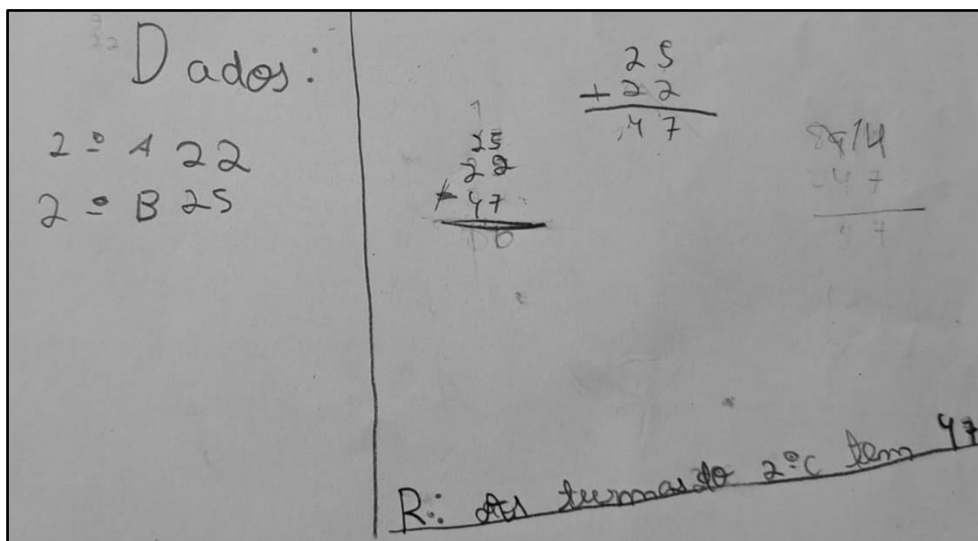 Dados:
2º A 22
2º B 25
25
+22
47
1
25
22
+47
47
- 47
R: As turmas do 2ºC tem 47